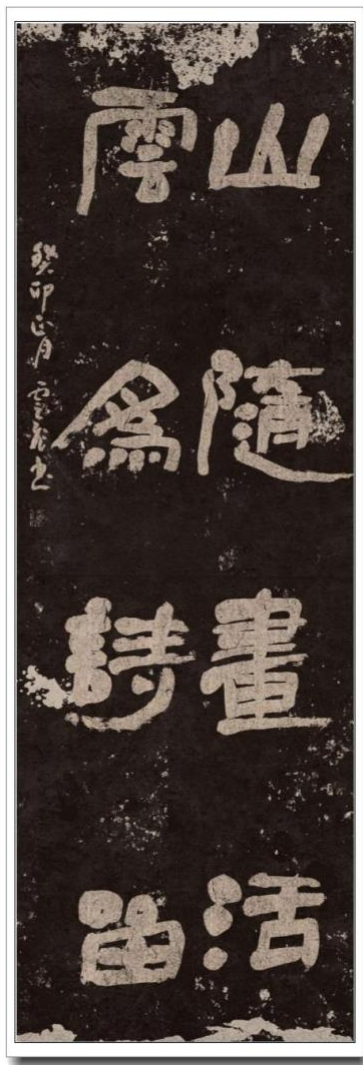 山隨畫活
雲為詩留
癸卯正月